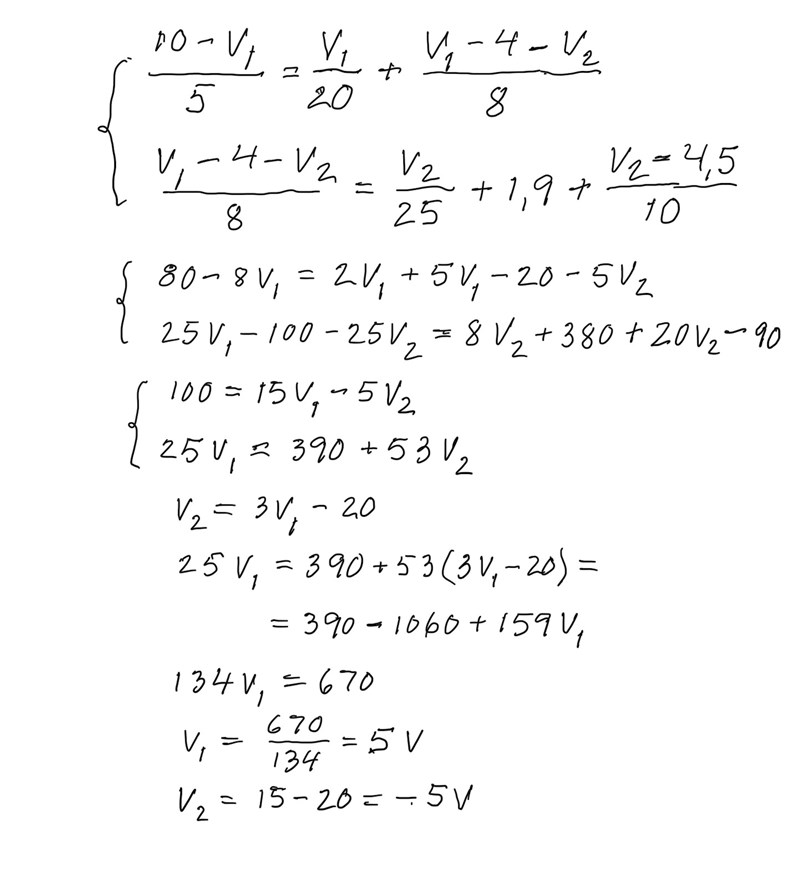 { (10 - V₁)/5 = V₁/20 + (V₁ - 4 - V₂)/8
(V₁ - 4 - V₂)/8 = V₂/25 + 1,9 + (V₂ - 4,5)/10
{ 80 - 8V₁ = 2V₁ + 5V₁ - 20 - 5V₂
25V₁ - 100 - 25V₂ = 8V₂ + 380 + 20V₂ - 90
{ 100 = 15V₁ - 5V₂
25V₁ = 390 + 53V₂
V₂ = 3V₁ - 20
25V₁ = 390 + 53(3V₁ - 20) =
= 390 - 1060 + 159V₁
134V₁ = 670
V₁ = 670/134 = 5 V
V₂ = 15 - 20 = -5V